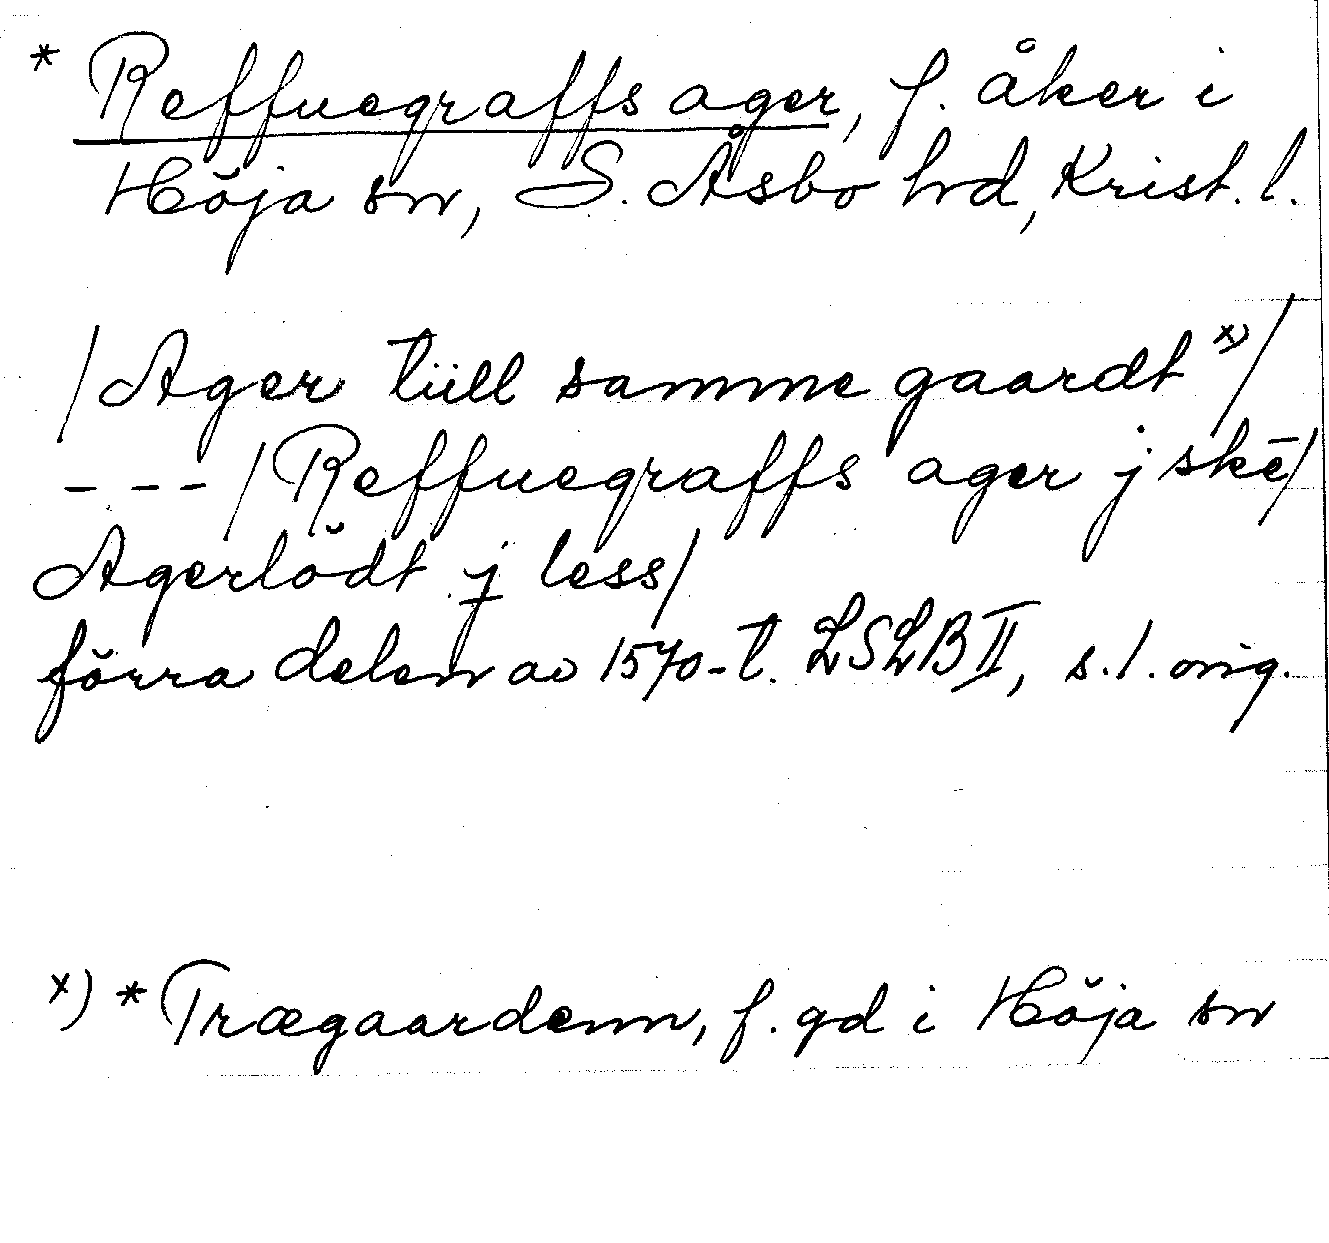 * Reffuegraffs ager, f. åker i
Höja sn, S. Åsbo hd, Krist. l.
/Ager tüll samme gaardt x)/
- - - /Reffuegraffs ager j skē/
Agerlödt j less/
förra delen av 1570-t. LSLB II, s. 1. orig.
x) * Trægaardenn, f. gd i Höja sn